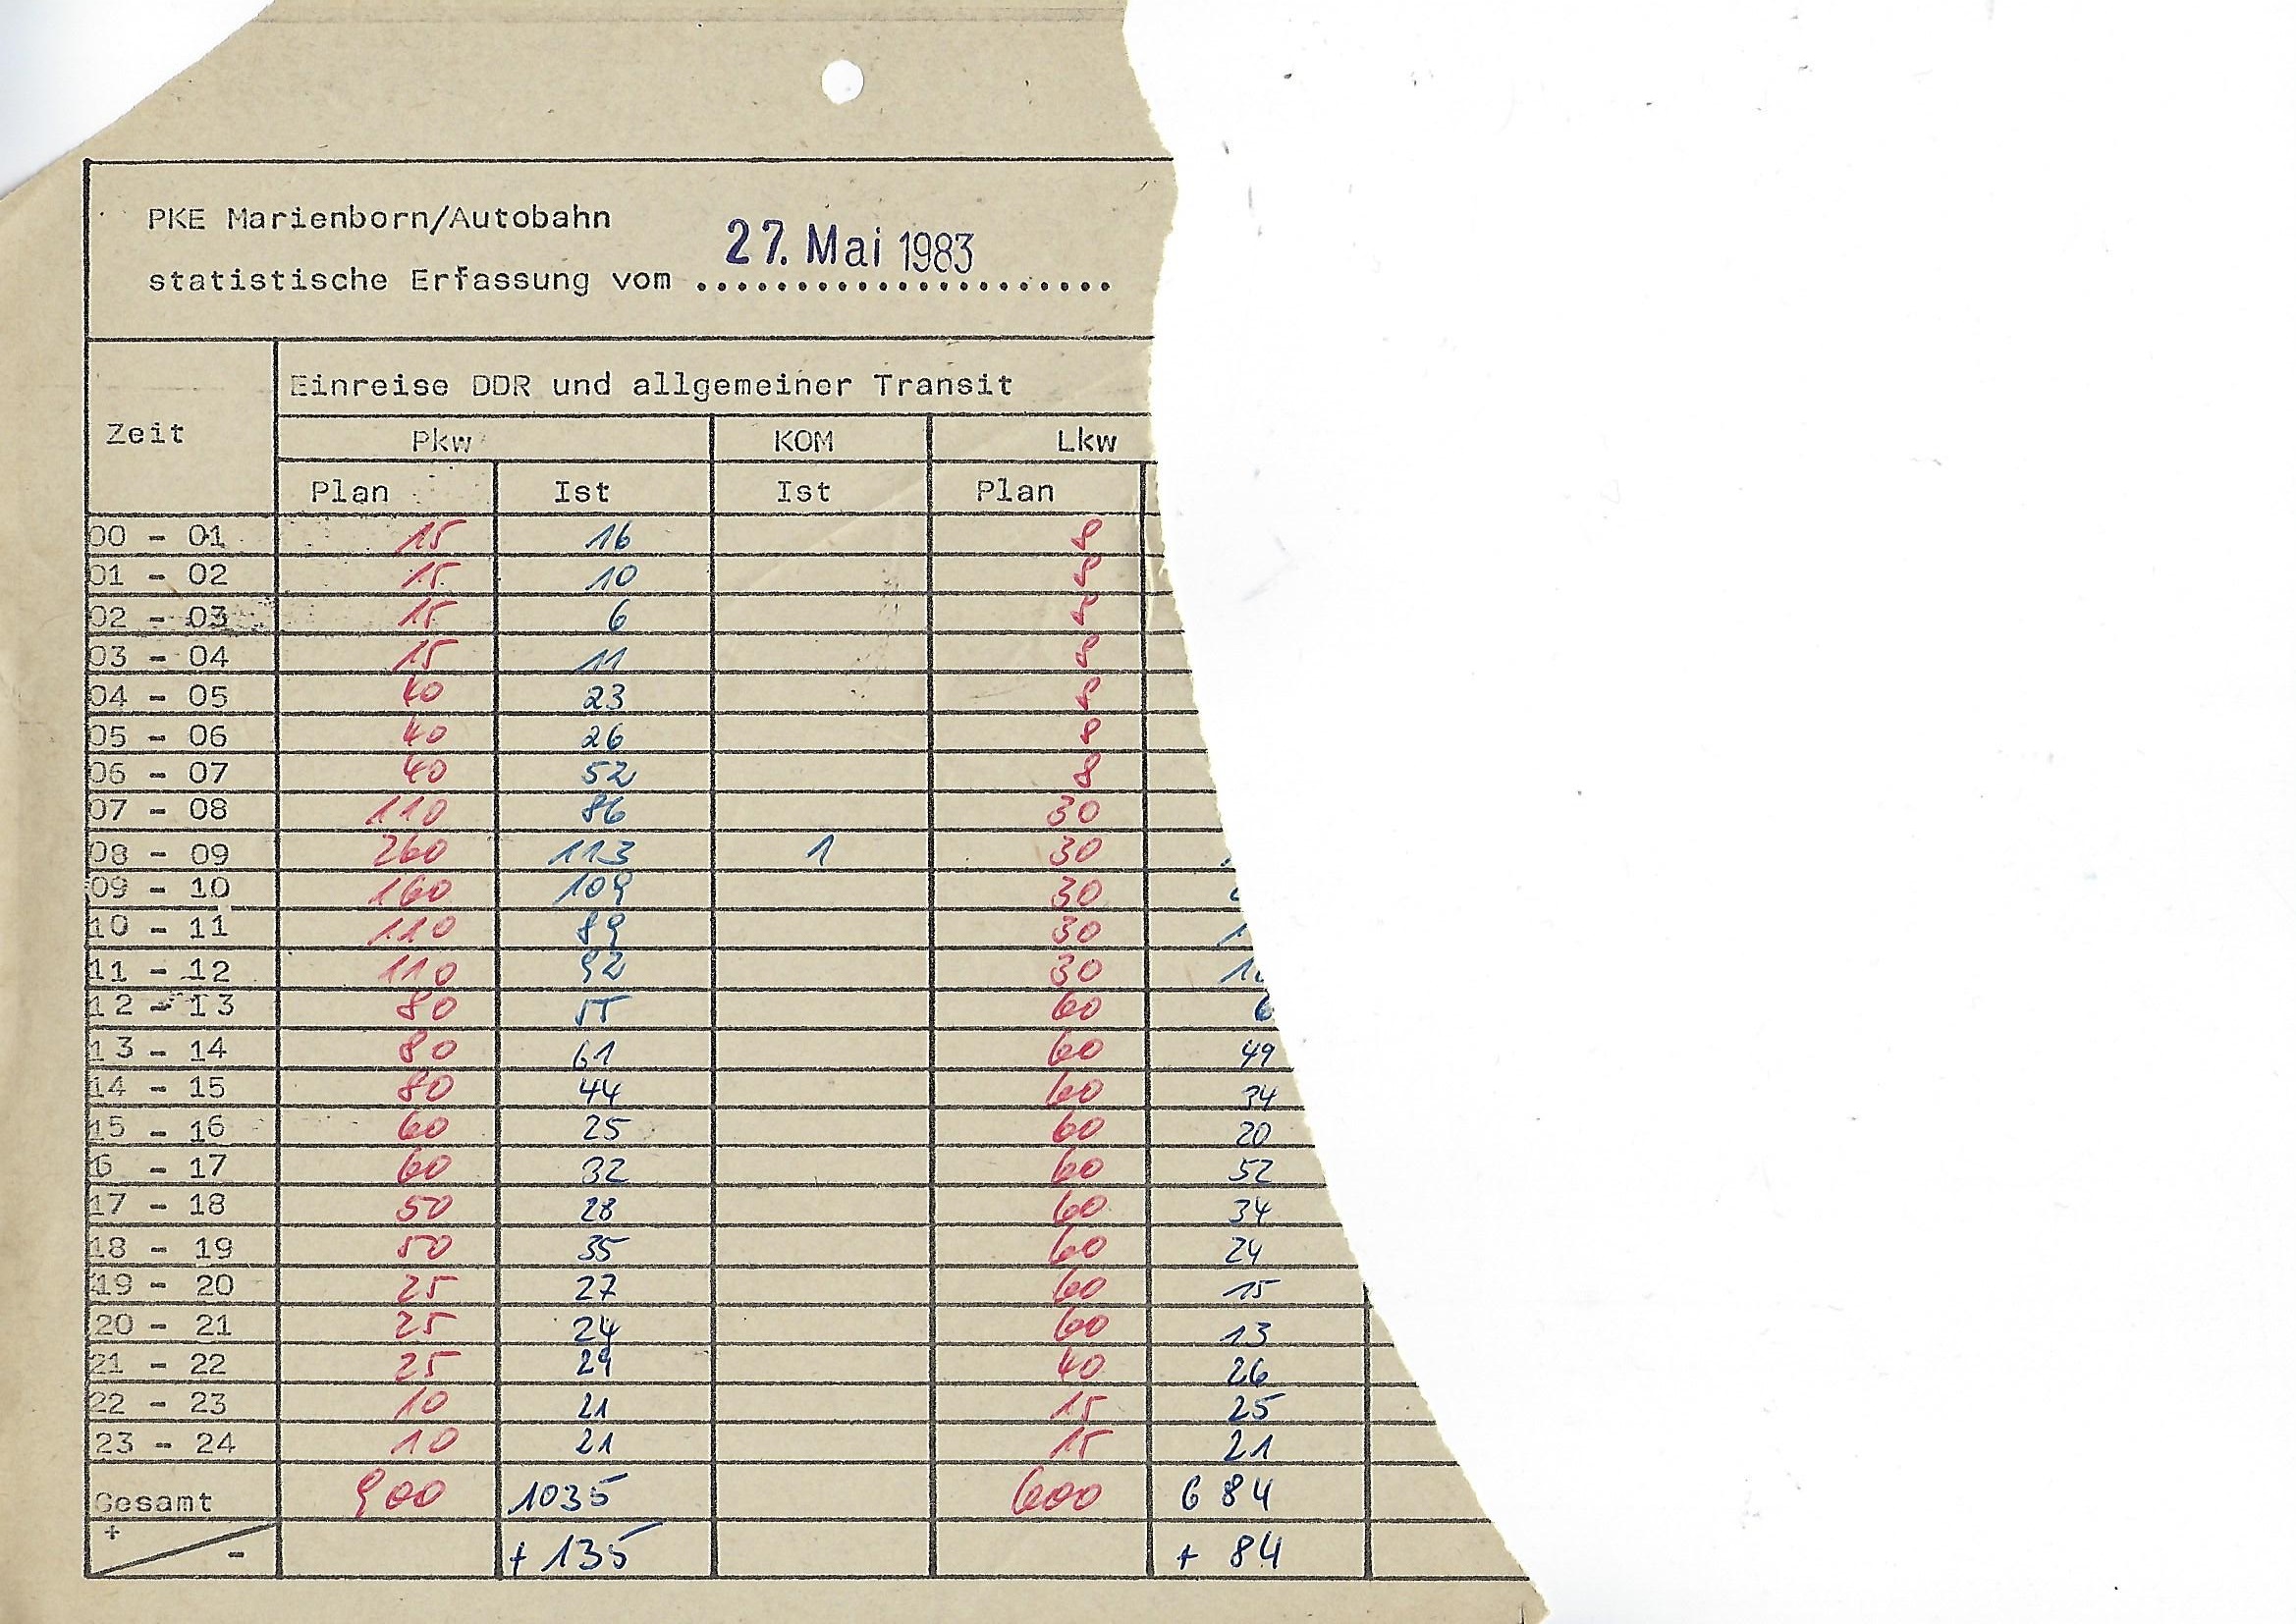 PKE Marienborn/Autobahn
27. Mai 1983
statistische Erfassung vom ......................
Zeit
Einreise DDR und allgemeiner Transit
Pkw KOM Lkw
Plan Ist Ist Plan
00 - 01 15 16 8
01 - 02 15 10 8
02 - 03 15 6 8
03 - 04 15 11 8
04 - 05 40 23 8
05 - 06 40 26 8
06 - 07 40 52 8
07 - 08 110 86 30
08 - 09 260 113 1 30
09 - 10 160 109 30
10 - 11 110 89 30
11 - 12 110 92 30
12 - I3 80 55 60
13 - 14 80 61 60 49
14 - 15 80 44 60 34
15 - 16 60 25 60 20
6 - 17 60 32 60 52
17 - 18 50 28 60 34
18 - 19 50 35 60 24
19 - 20 25 27 60 15
20 - 21 25 24 60 13
21 - 22 25 29 40 26
22 - 23 10 21 15 25
23 - 24 10 21 15 21
Gesamt 900 1035 600 684
+ - + 135 + 84